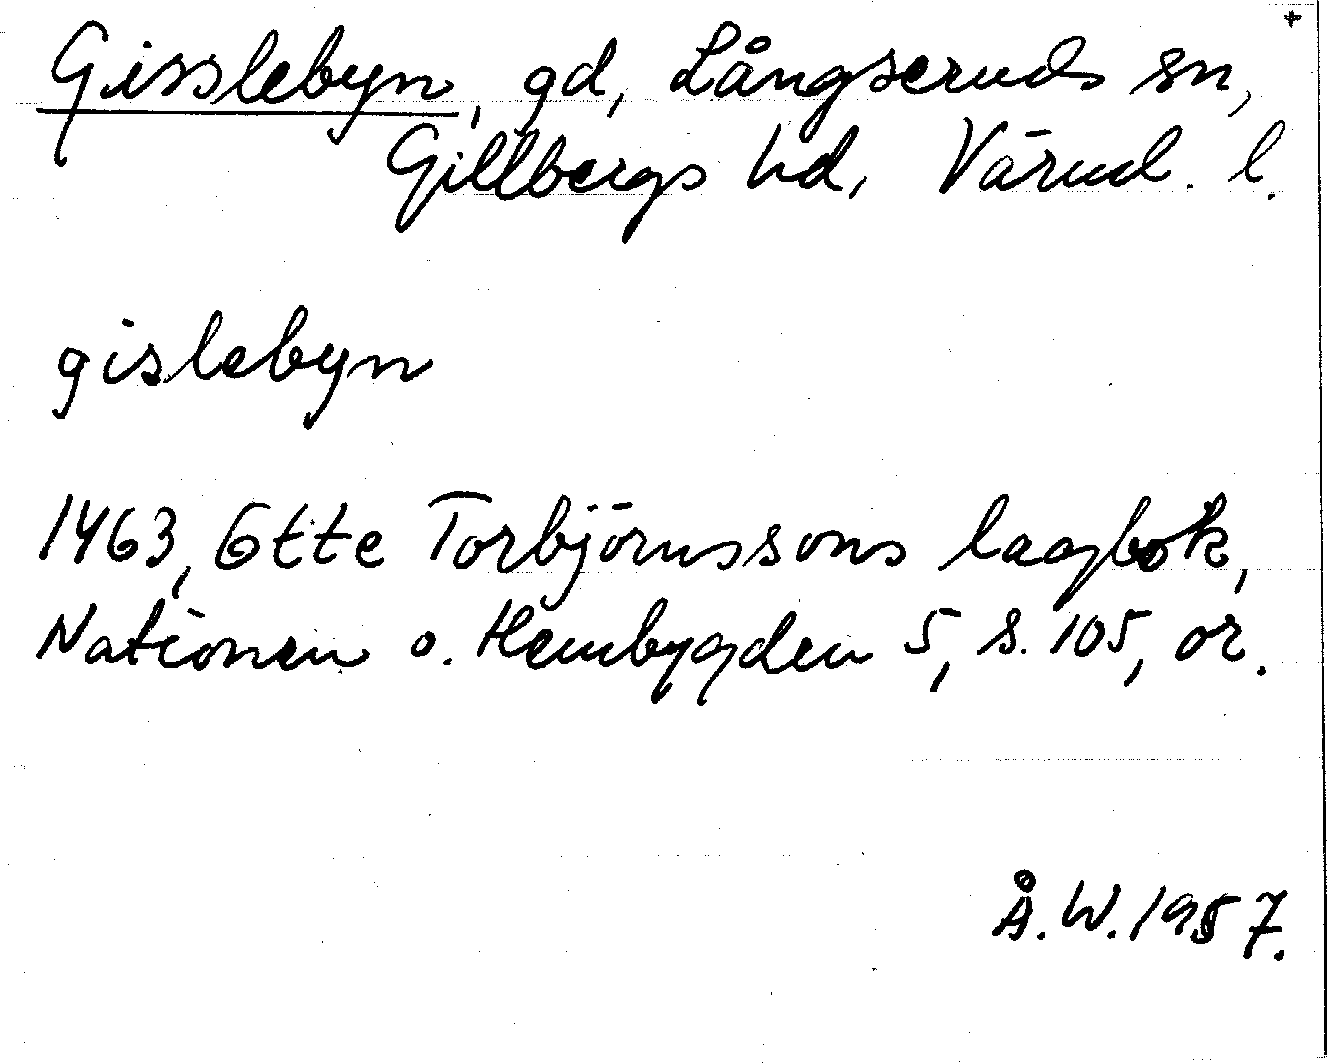 +
Gisslebyn, gd, Långseruds sn,
Gillbergs hd, Värml. l.
gislebyn
1463, Otte Torbjörnssons lagbok,
Nationen o. Hembygden 5, s. 105, or.
Å.W. 1957.